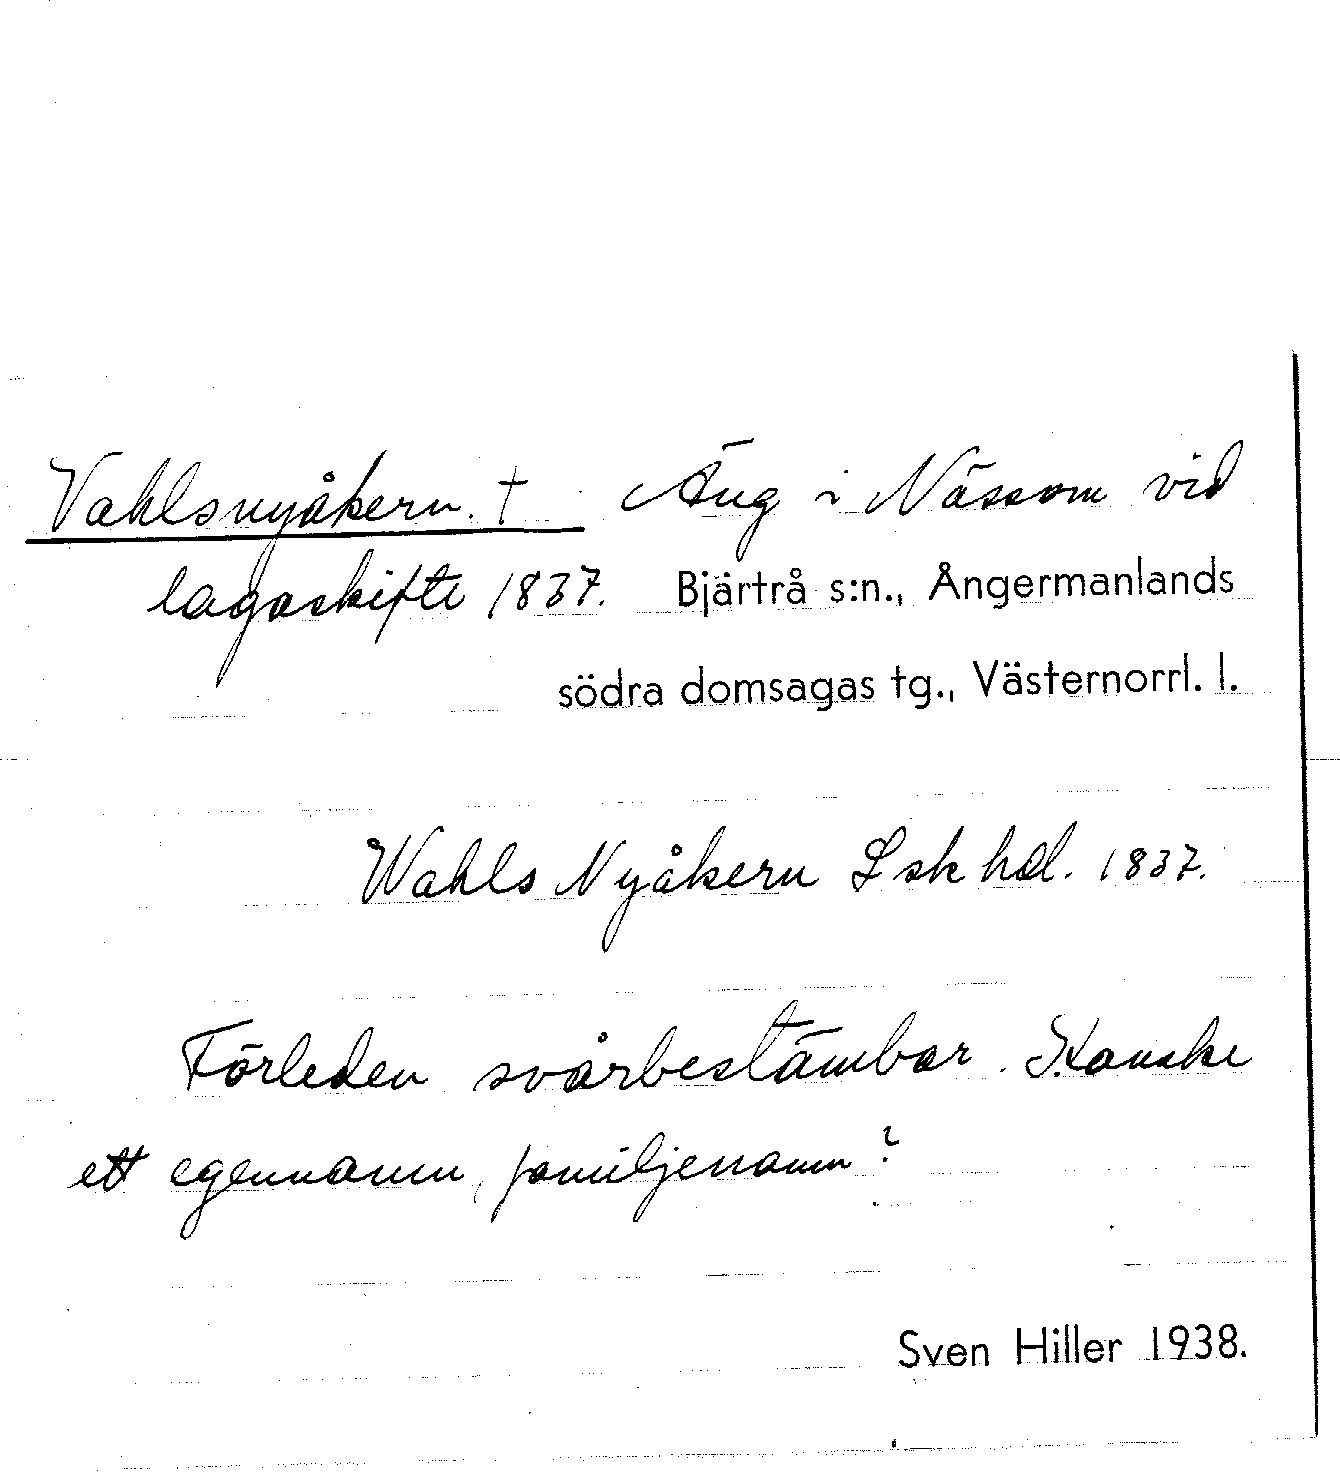 Vahlsnyåkern. † Äng i Nässom vid
lagaskifte 1837. Bjärtrå s:n., Ångermanlands
södra domsagas tg., Västernorrl. l.
Wahls Nyåkern Lskhdl. 1837.
Förleden svårbestämbar. Kanske
ett egennamn, familjenamn?
Sven Hiller 1938.